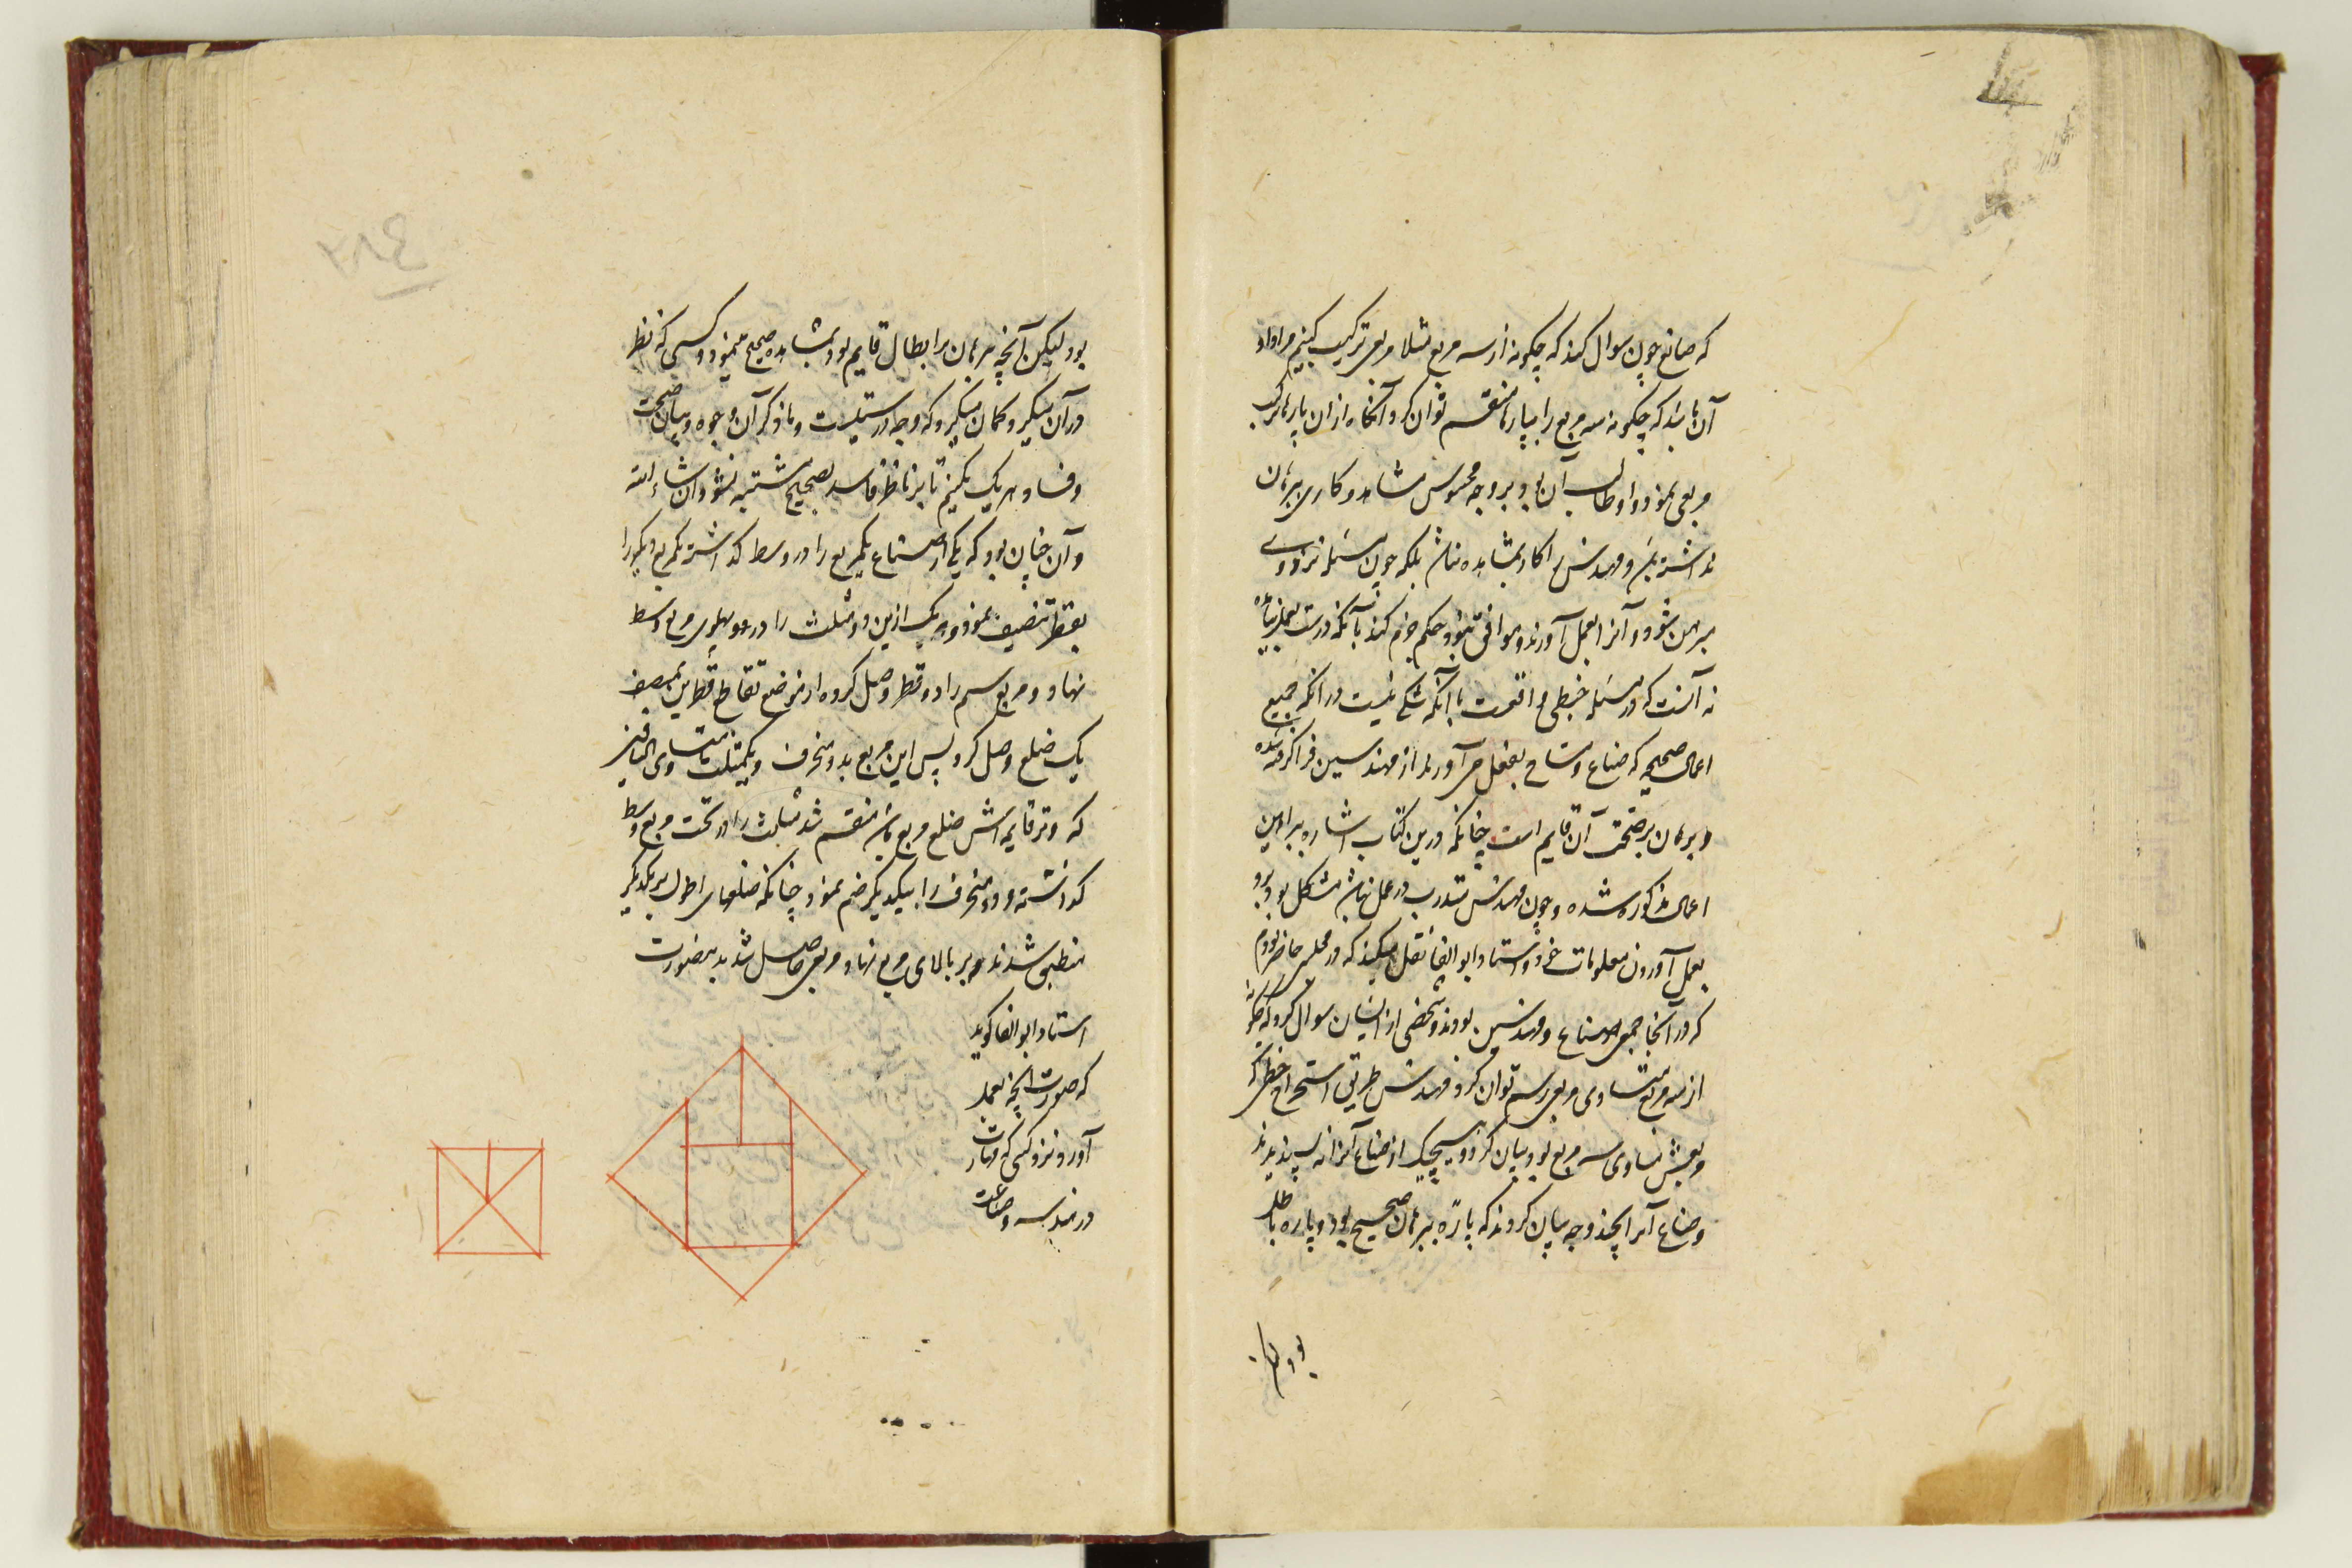 که صانع چون سوال کند که چگونه از سه مربع مثلا مربعی ترکیب کنیم مراد او
آن باشد که چگونه سه مربع را بپارها منقسم توان کرد و آنگاه از ان پارها مرکب
مربعی نمود و او طالب آن بود بر وجه محسوس مشاهد و کاری ببرهان
نداشته باشد و مهندس را کار بمشاهده نباشد بلکه چون مسئله نزد وی
مبرهن شود و آنرا بعمل آورند و موافق نبود حکم جزم کند بآنکه درست بعمل نیامده
نه آنست که در مسئله خبطی واقعست با آنکه شکی نیست در آنکه جمیع
اعمال صحیحه که صناع و مساح بفعل می آورند از مهندسین فرا گرفته شده
و برهان بر صحت آن قایم است چنانکه درین کتاب اشاره ببراهین
اعمال مذکوره شده و چون مهندس متدرب در عمل نباشد مشکل بود برو
بعمل آوردن معلومات خود و استاد ابو الوفا نقل میکند که در محلی حاضر بودم
که در آنجا جمعی صناع و مهندسین بودند و شخصی از ایشان سوال کرد که چگونه
از سه مربع متساوی مربعی رسم توان کرد و مهندس طریق استخراج خطی که
مربعش مساوی سه مربع بود بیان کرد و هیچیک از صناع آنرا نه پسندیدند
و صناع آنرا بچند وجه بیان کردند که پاره ببرهان صحیح بود و پاره باطل
بود لیکن
بود لیکن آنچه برهان بر ابطال قایم بود بمشاهده صحیح مینمود و کسی که نظر
در آن میکرد گمان میکرد که وجه درستیست و ما ذکر آن وجوه و بیان صحت
و فساد هر یک بکنیم تا بر ناظر فاسد بصحیح مشتبه نشود ان شاء الله
و آن چنان بود که یکی از صناع یک مربع را در وسط گذاشته یک مربع دیگر را
بقطر تنصیف نمود و هر یک ازین دو مثلث را در دو پهلوی مربع وسط
نهاد و مربع سیم را دو قطر وصل کرده از موضع تقاطع قطرین بمنصف
یک ضلع وصل کرد پس این مربع بدو منحرف و یک مثلث متساوی الساقین
که وتر قایمه اش ضلع مربع باشد منقسم شد مثلث را در تحت مربع وسط
گذاشته و دو منحرف را بیکدیگر ضم نمود چنانکه ضلعهای اطول بر یکدیگر
منطبق شدند و بر بالای مربع نهاد مربعی حاصل شد بدینصورت
استاد ابو الوفا گوید
که صورت آنچه بعمل
آورد نزد کسی که مهارت
در هندسه و صناعت